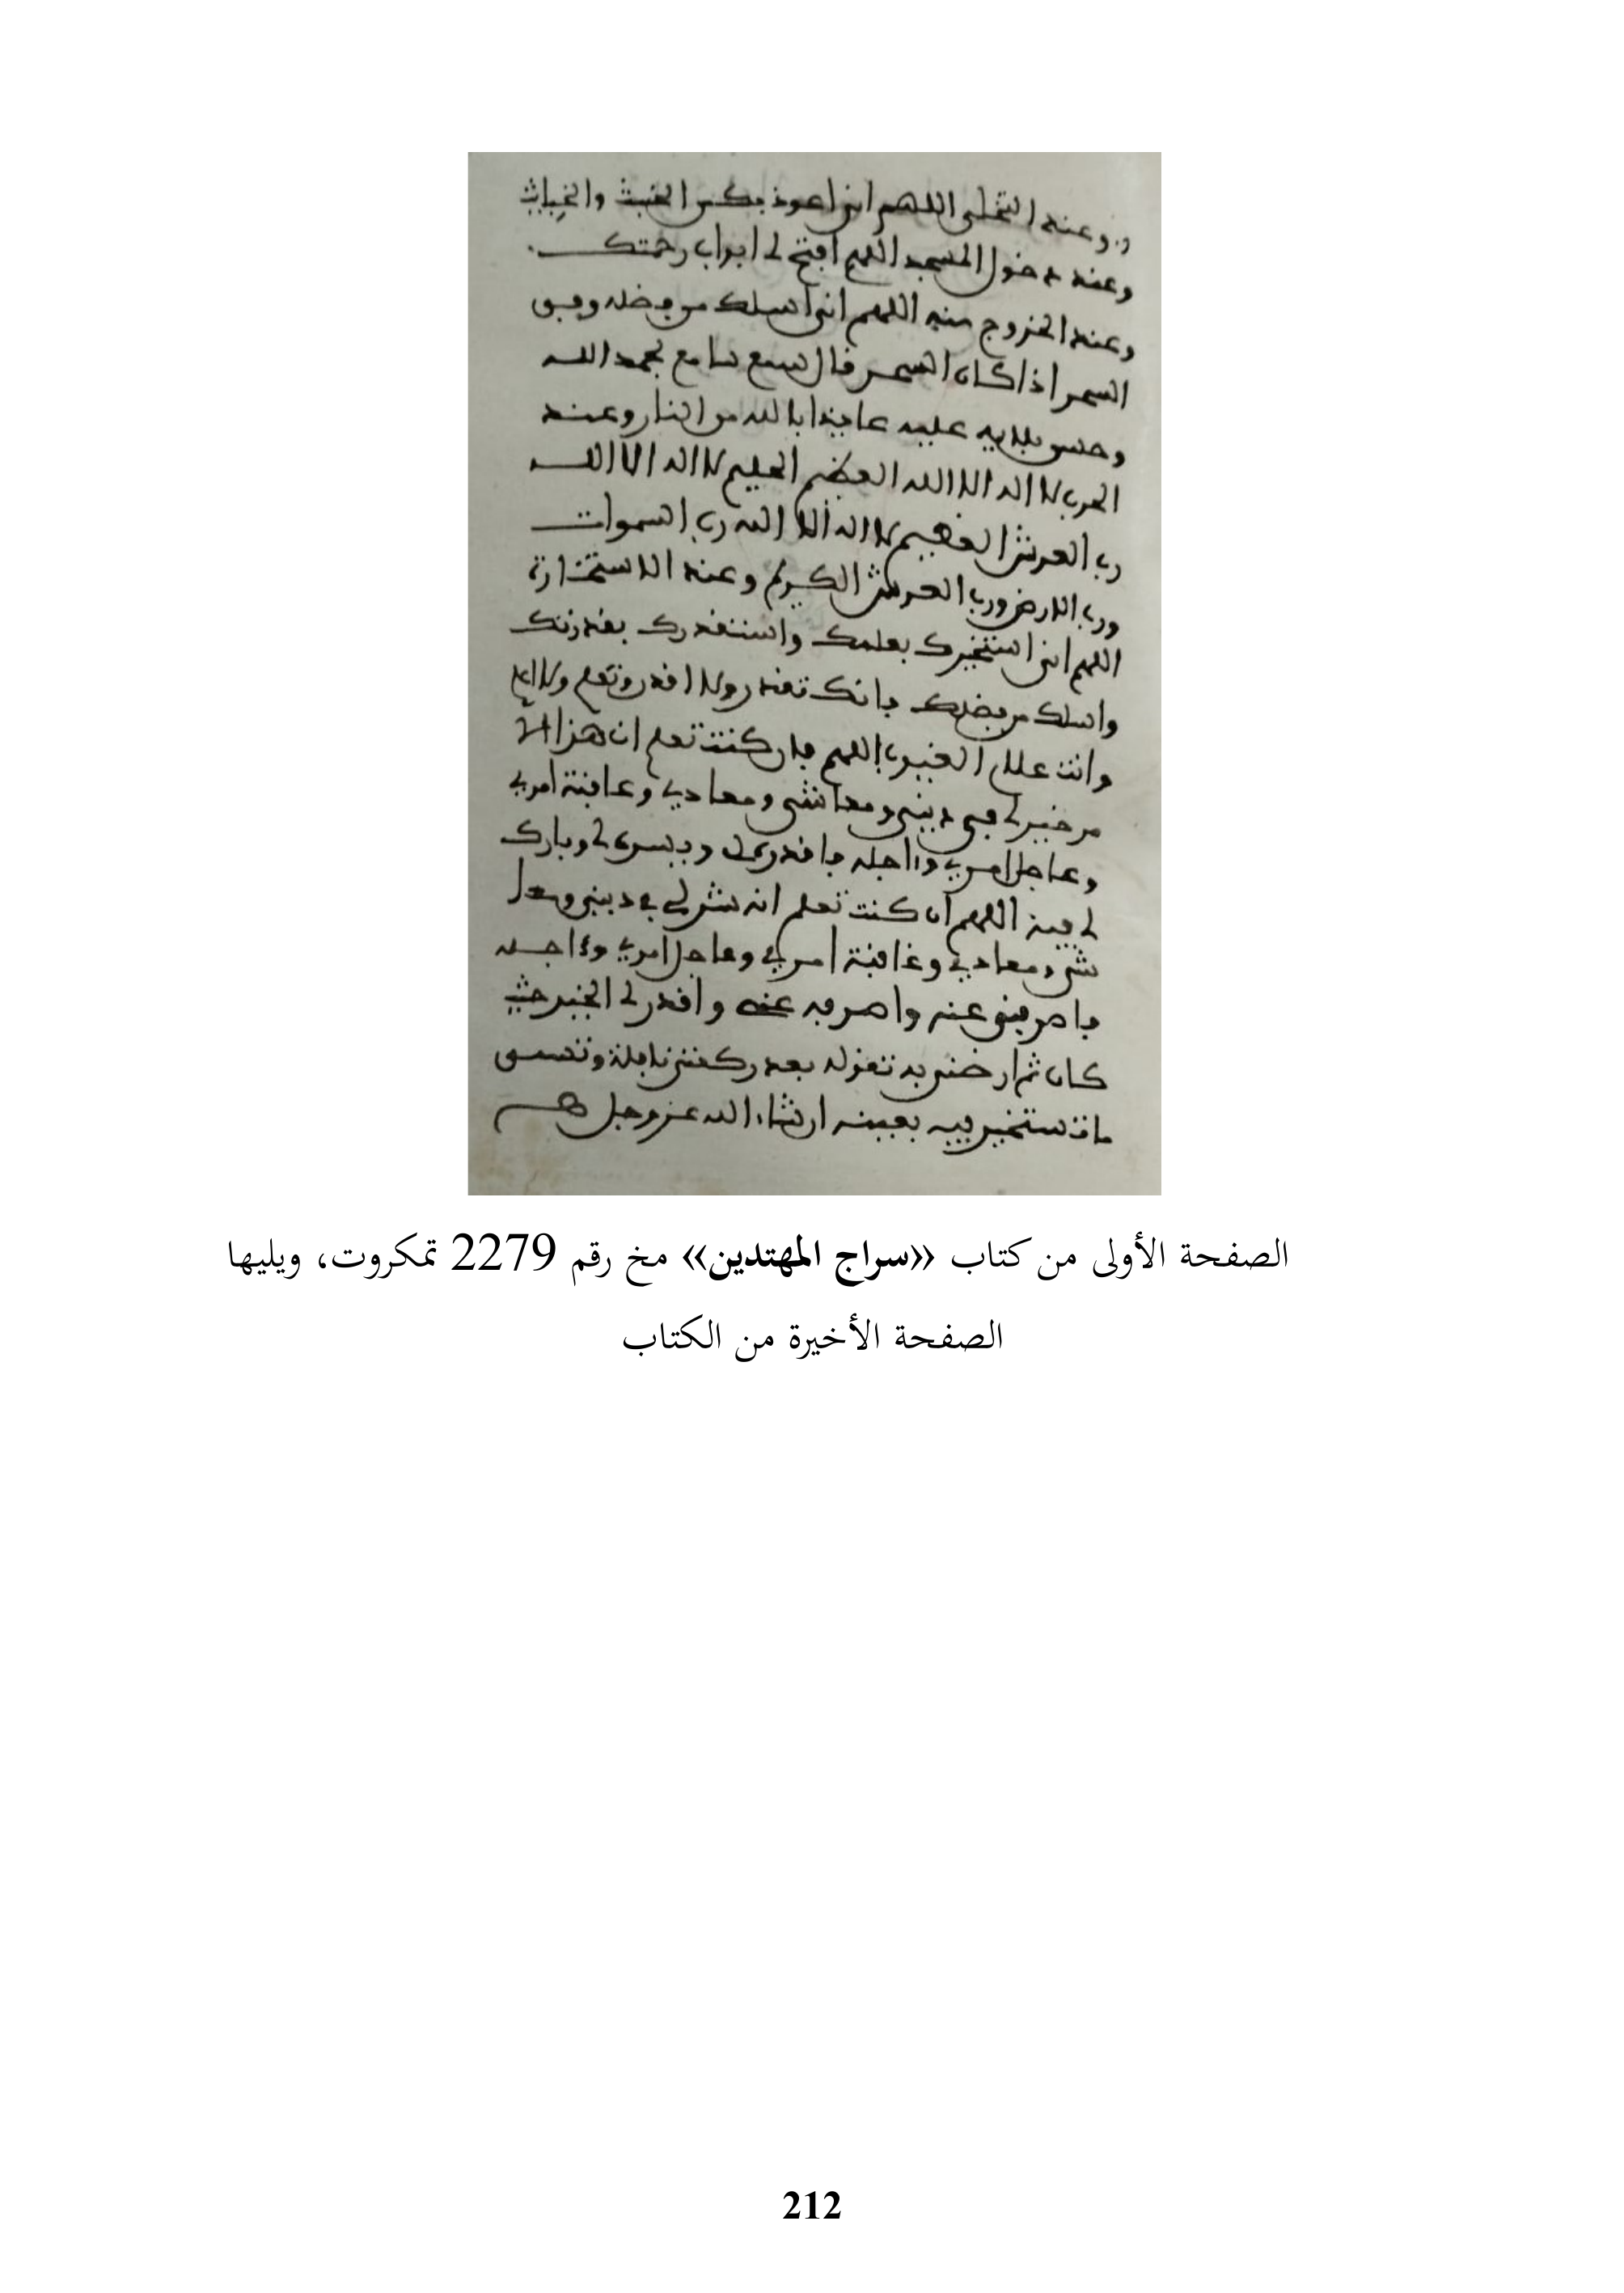 وعند التخلي اللهم اني اعوذ بك من الخبث والخبايث
وعند دخول المسجد اللهم افتح لي ابواب رحمتك
وعند الخروج منه اللهم اني اسلك من فضلك وفي
السحر اذا كان السحر قال سمع سامع بحمد الله
وحسن بلايه علينا عايذا بالله من النار وعند
الكرب لا اله الا الله العظيم الحليم لا اله الا الله
رب العرش العظيم لا اله الا الله رب السموات
ورب الارض ورب العرش الكريم وعند الاستخارة
اللهم اني استخيرك بعلمك واستقدرك بقدرتك
واسلك من فضلك فانك تقدر ولا اقدر وتعلم ولا اعلم
وانت علام الغيوب اللهم فان كنت تعلم ان هذا الا
مر خير لي في ديني ومعاشي ومعادي وعاقبة امري
وعاجل امري وءاجله فاقدره لي ويسره لي وبارك
لي فيه اللهم ان كنت تعلم انه شر لي في ديني ومعا
شي ومعادي وعاقبة امري وعاجل امري وءاجله
فاصرفني عنه واصرفه عني واقدر لي الخير حيث
كان ثم ارضني به تقوله بعد ركعتين نافلة وتسمي
ما تستخير فيه بعينه ان شاء الله عز وجل
الصفحة الأولى من كتاب «سراج المهتدين» مخ رقم 2279 تمكروت، ويليها
الصفحة الأخيرة من الكتاب
212